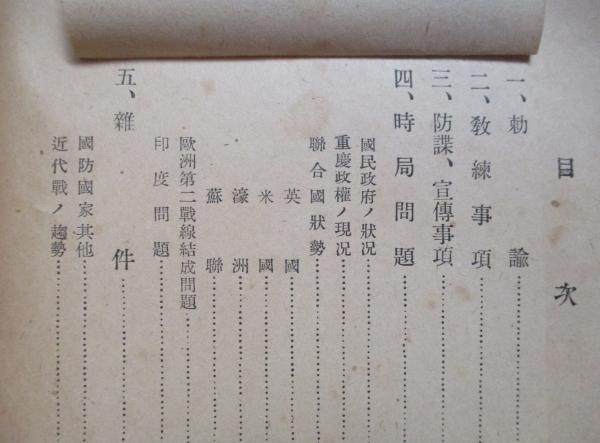 目次
一、勅諭………………
二、教練事項………………
三、防諜、宣傳事項………………
四、時局問題………………
國民政府ノ狀況………………
重慶政權ノ現況………………
聯合國狀勢………………
英國………………
米國………………
濠洲………………
蘇聯………………
歐洲第二戰線結成問題………………
印度問題………………
五、雜件………………
國防國家其他………………
近代戰ノ趨勢………………